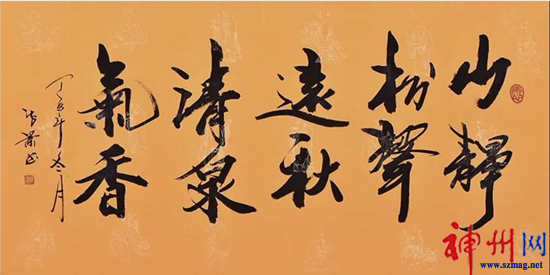 山靜
松聲
遠秋
清泉
氣香
丁亥年冬月
神州网
www.szmag.net